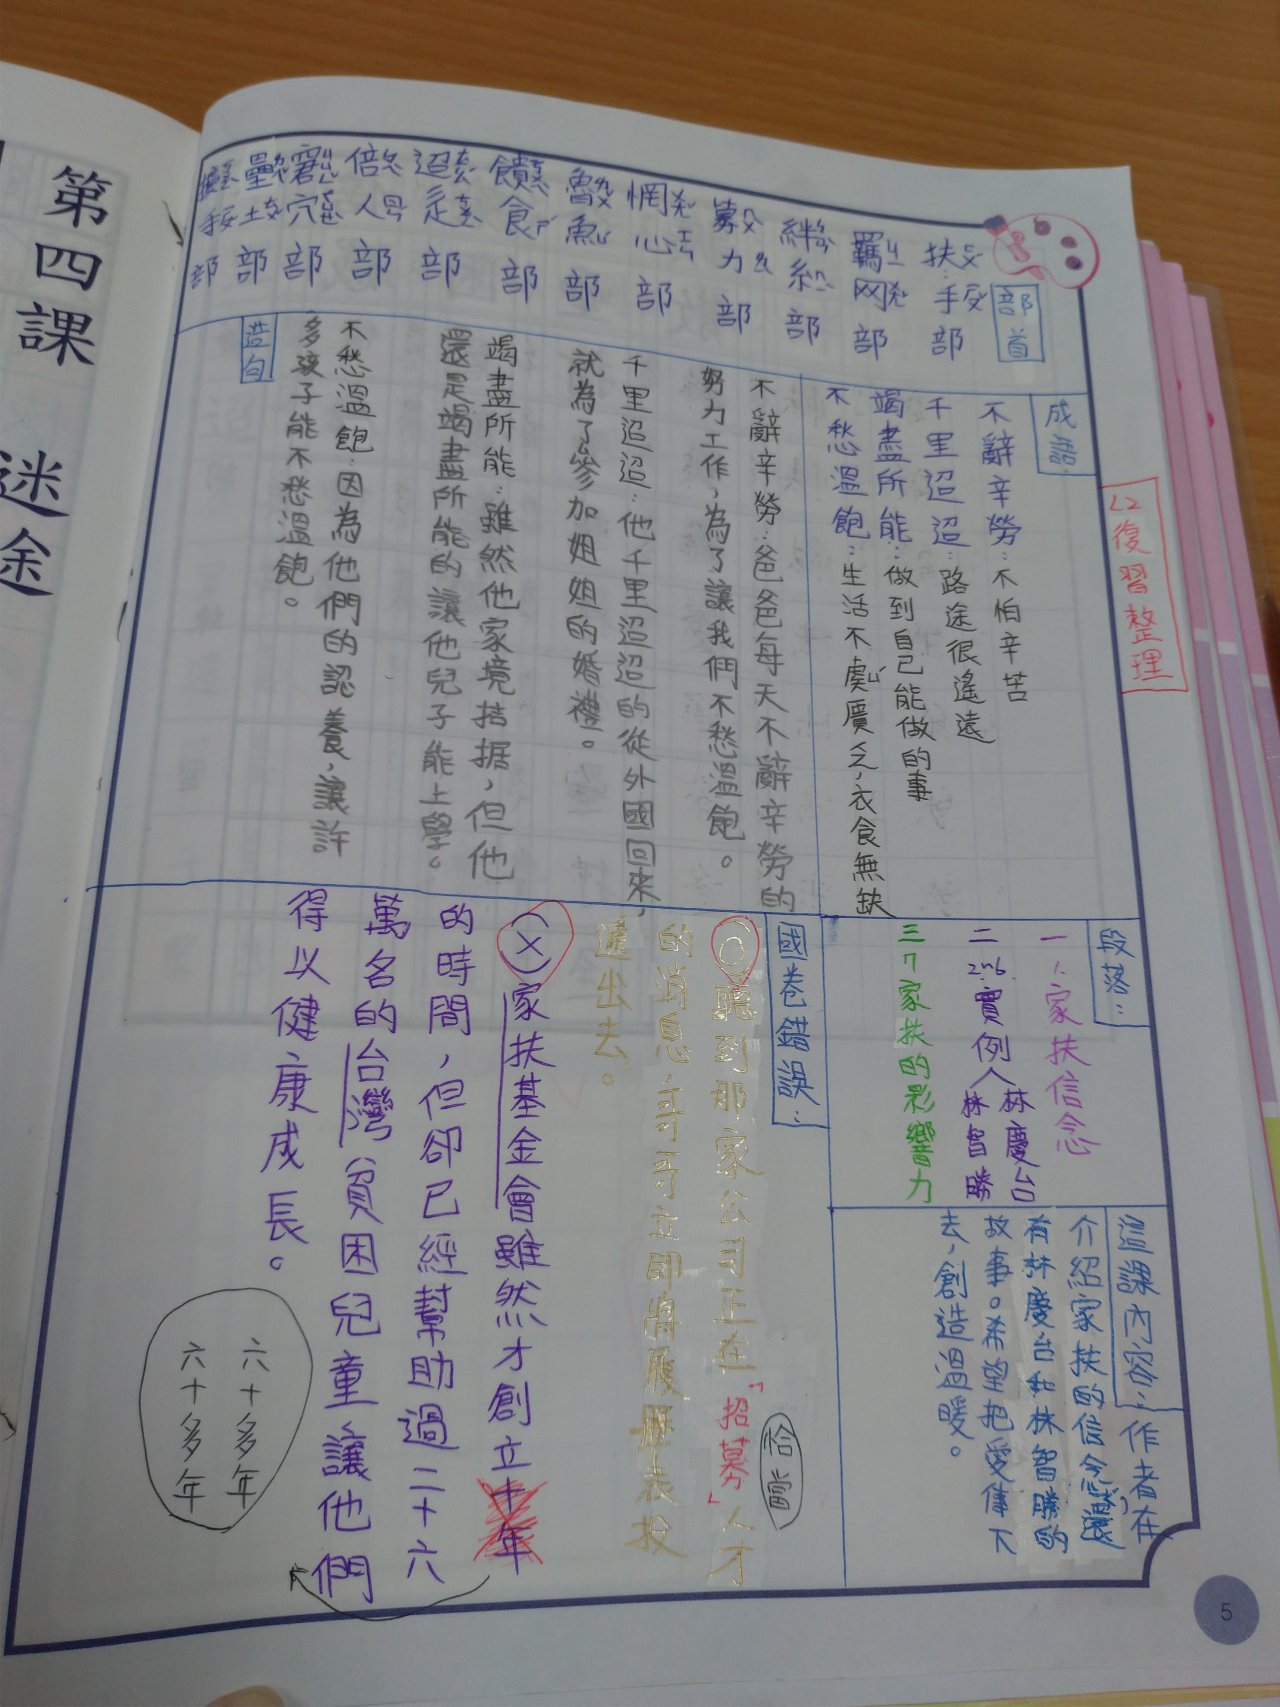 L2復習整理
部首
扶 手部
羈 网部
絆 糸部
募 力部
惘 心部
魯 魚部
饋 食部
迢 辵部
倍 人部
窘 穴部
壘 土部
手部
成語:
不辭辛勞:不怕辛苦
千里迢迢:路途很遙遠
竭盡所能:做到自己能做的事
不愁溫飽:生活不虞匱乏,衣食無缺
造句
不辭辛勞:爸爸每天不辭辛勞的
努力工作,為了讓我們不愁溫飽。
千里迢迢:他千里迢迢的從外國回來,
就為了參加姐姐的婚禮。
竭盡所能:雖然他家境拮据,但他
還是竭盡所能的讓他兒子能上學。
不愁溫飽:因為他們的認養,讓許
多孩子能不愁溫飽。
段落:
一 1、家扶信念
二 2~6、實例人 林慶台
林智勝
三 7 家扶的影響力
這課內容:作者在
介紹家扶的信念,還
有林慶台和林智勝的
故事。希望把愛傳下
去,創造溫暖。
國卷錯誤:
(○)聽到那家公司正在「招募」人才
恰當
的消息,哥哥立即將履歷表投
遞出去。
(×)家扶基金會雖然才創立十年
的時間,但卻已經幫助過二十六
萬名的台灣貧困兒童讓他們
得以健康成長。
六十多年
六十多年
5
第四課 迷途